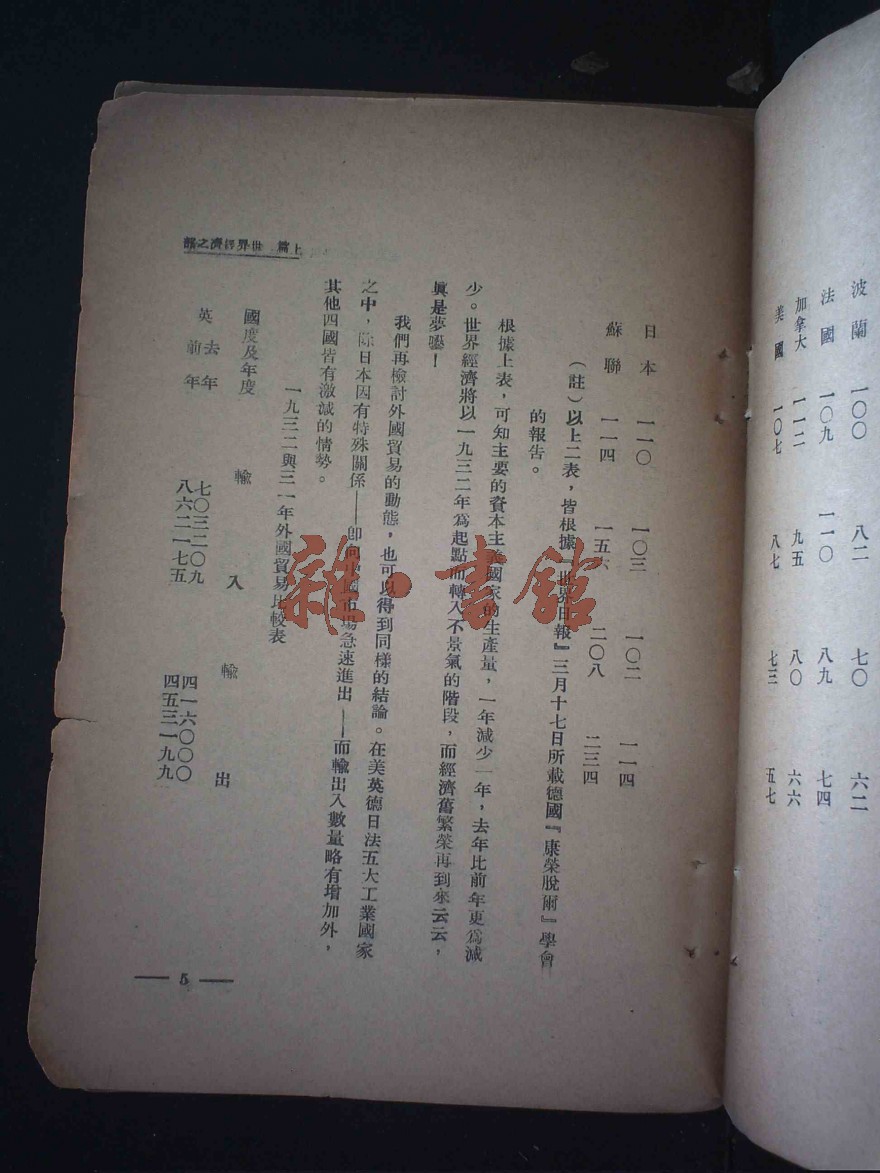 波蘭　一〇〇　八二　七〇　六二
法國　一〇九　一一〇　八九　七四
加拿大　一一二　九五　八〇　六六
美國　一〇七　八七　七三　五七
日本　一一〇　一〇三　一〇二　一一四
蘇聯　一一四　一五六　二〇八　二三四
(註)以上二表，皆根據『世界日報』三月十七日所載德國『康榮脫爾』學會
的報告。
根據上表，可知主要的資本主義國家的生產量，一年減少一年，去年比前年更爲減
少。世界經濟將以一九三二年爲起點而轉入不景氣的階段，而經濟舊繁榮再到來云云，
眞是夢囈！
我們再檢討外國貿易的動態，也可以得到同樣的結論。在美英德日法五大工業國家
之中，除日本因有特殊關係——卽向中國市場急速進出——而輸出入數量略有增加外，
其他四國皆有激減的情勢。
一九三二與三一年外國貿易比較表
國度及年度　輸入　輸出
英　去年　七〇三二〇九　四一六〇〇〇
前年　八六二一七五　四五三一九九
上篇　世界經濟之部
— 5 —
雜·書館